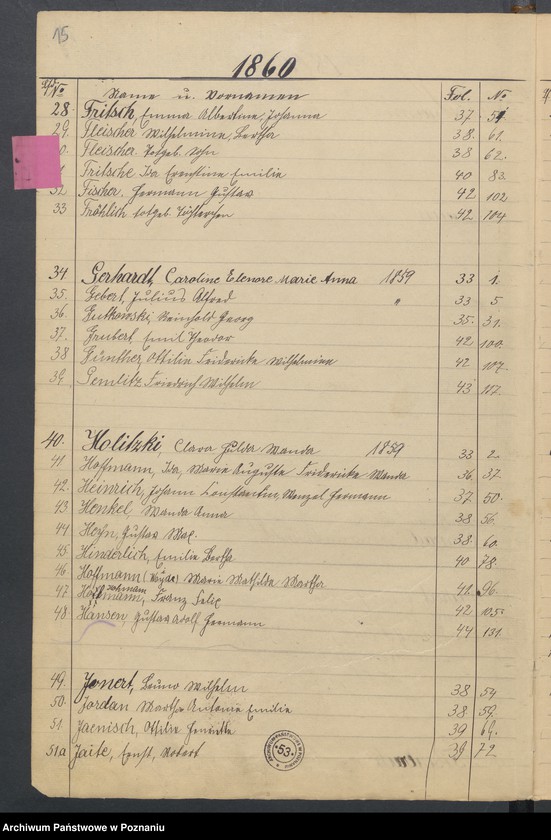 15
1860
Lfd. No Name u. Vornamen Fol. No
28. Fritsch, Emma Albertine, Johanna 37 51.
29. Fleischer Wilhelmine, Bertha 38. 61.
0. Fleischer. totgeb. Sohn 38 62.
Fritsche Ida Ernestine Emilie 40 83.
32. Fischer, Hermann Gustav 42 102
33 Fröhlich totgeb. Töchterchen 42 104
34 Gerhardt, Caroline Elenore Marie Anna 1859 33 1.
35. Gebert, Julius Alfred " 33 5
36. Gutkowski, Reinhold Georg 35. 31.
37. Grubert, Emil Theodor 42 100.
38 Günther, Ottilie Friedericke Wilhelmine 42 107.
39. Gemlitz Friedrich Wilhelm 43 117.
40. Holitzki, Clara Hulda Wanda 1859 33 2.
41 Hoffmann, Ida, Marie Auguste Friedericke Wanda 36. 37.
42. Heinrich, Johann Constantin, Wenzel Hermann 37 50.
43 Henkel, Wanda Anna 38 56.
44 Heyn, Gustav Max. 38 60.
45 Hinderlich, Emilie Bertha 40 78.
46 Hoffmann Marie Mathilde Martha 41. 96.
47. Franz Felix 42 105.
48 Hansen, Gustav Adolf, Hermann 44 131.
49. Jonert, Bruno Wilhelm 38 54
50. Jordan Martha Antonie Emilie 38 59.
51. Jaenisch, Ottilie 39
51a Jaite, Ernst, Robert 39 72
53
Archiwum Państwowe w Poznaniu